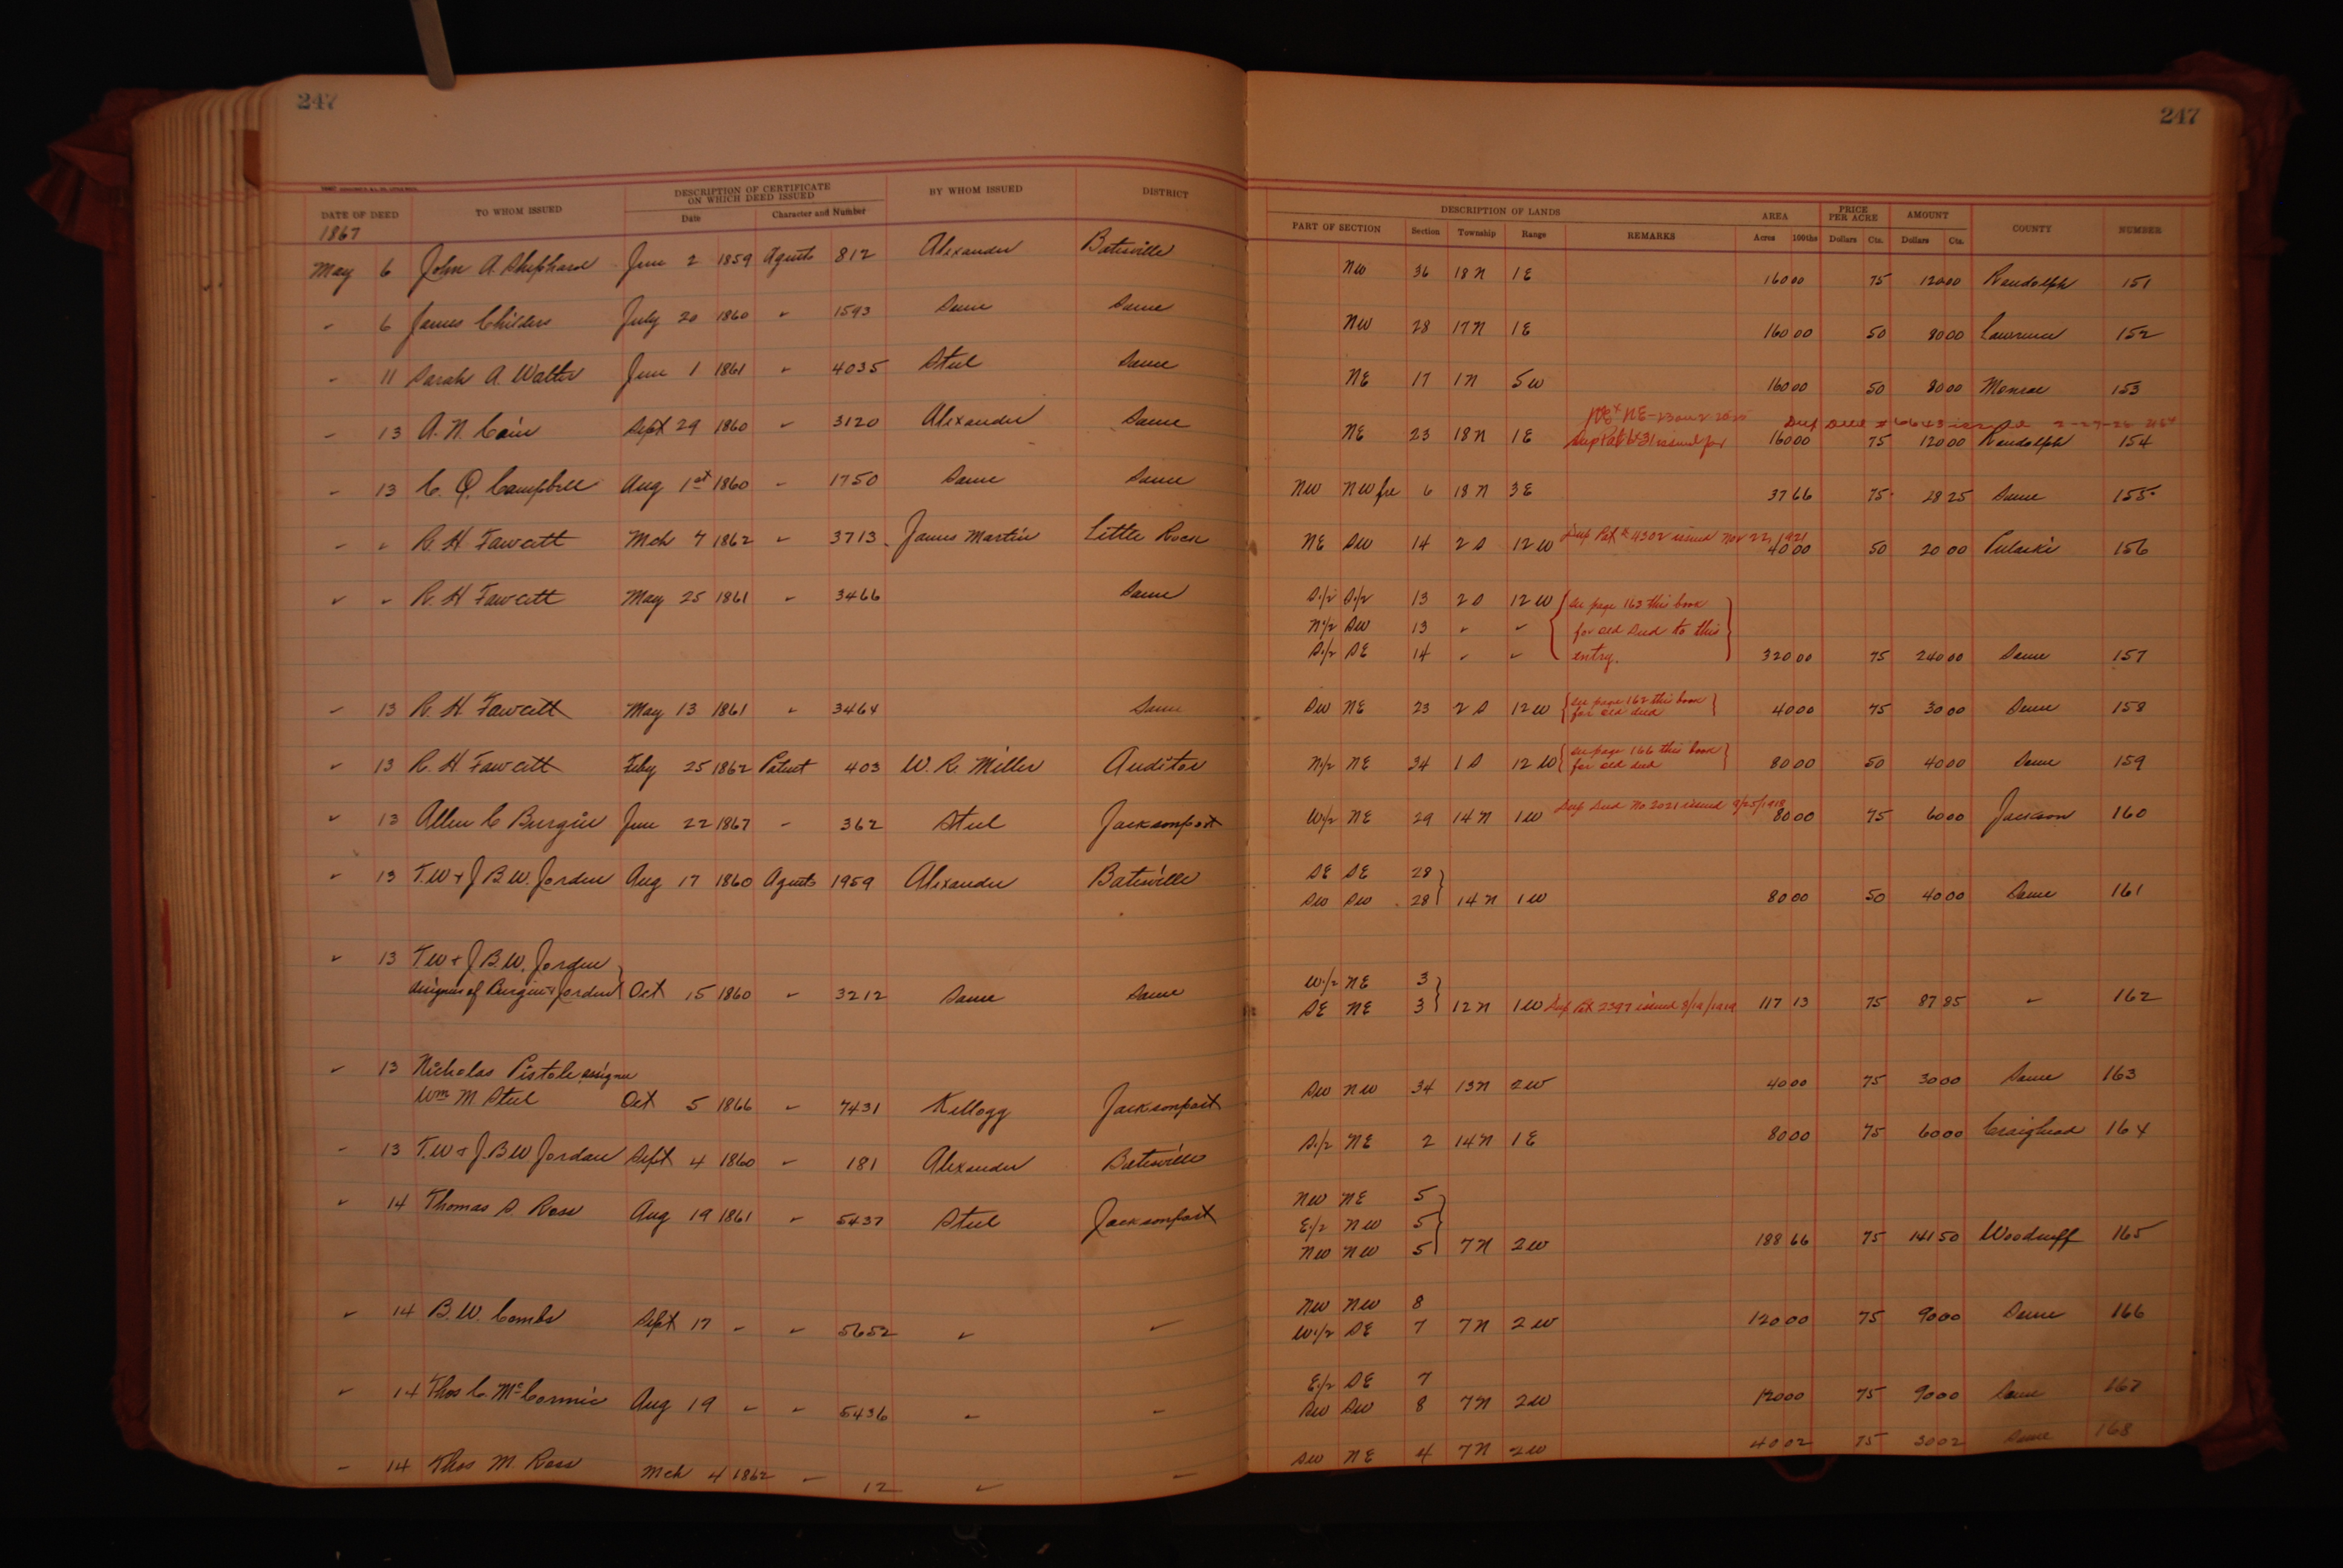 247
247
DATE OF DEED TO WHOM ISSUED DESCRIPTION OF CERTIFICATE ON WHICH DEED ISSUED BY WHOM ISSUED DISTRICT DESCRIPTION OF LANDS AREA PRICE PER ACRE AMOUNT COUNTY NUMBER
Date Character and Number PART OF SECTION Section Township Range REMARKS Acres 100ths Dollars Cts. Dollars Cts.
1867
May 6 John A. Shephard June 2 1859 Agents 812 Alexander Batesville NW 36 18 N 1 E 160 00 75 120 00 Randolph 151
" 6 James Childers July 20 1860 " 1593 Same Same NW 28 17 N 1 E 160 00 50 80 00 Lawrence 152
" 11 Sarah A. Walter June 1 1861 " 4035 Steel Same NE 17 1 N 5 W 160 00 50 80 00 Monroe 153
" 13 A. N. Cain Sept 29 1860 " 3120 Alexander Same NE 23 18 N 1 E 160 00 75 120 00 Randolph 154
" 13 C. Q. Campbell Aug 1st 1860 " 1750 Same Same NW NW fr 6 18 N 3 E 37 66 75 28 25 Same 155
" " R. H. Fawcett Mch 7 1862 " 3713 James Martin Little Rock NE SW 14 2 S 12 W Dup Pat # 4302 issued Nov 22, 1921 40 00 50 20 00 Pulaski 156
" " R. H. Fawcett May 25 1861 " 3466 Same S 1/2 S 1/2 13 2 S 12 W see page 163 this book
N 1/2 SW 13 " " for old deed to this
S 1/2 SE 14 " " entry. 320 00 75 240 00 Same 157
" 13 R. H. Fawcett May 13 1861 " 3464 Same SW NE 23 2 S 12 W see page 162 this book for old deed 40 00 75 30 00 Same 158
" 13 R. H. Fawcett Feby 25 1862 Patent 403 W. R. Miller Auditor N 1/2 NE 34 1 S 12 W see page 166 this book for old deed 80 00 50 40 00 Same 159
" 13 Allen C Burgin June 22 1867 " 362 Steel Jacksonport W 1/2 NE 29 14 N 1 W Dup Deed No 2021 issued 9/25/1918 80 00 75 60 00 Jackson 160
" 13 T. W + J B. W. Jorden Aug 17 1860 Agents 1959 Alexander Batesville SE SE 28
SW SW 28 14 N 1 W 80 00 50 40 00 Same 161
" 13 T. W + J B. W. Jorden W 1/2 NE 3
assignees of Burgin + Jorden Oct 15 1860 " 3212 Same Same SE NE 3 12 N 1 W Dup Pat 2397 issued 117 13 75 87 85 " 162
" 13 Nicholas Pistole assignee
Wm M Steel Oct 5 1866 " 7431 Kellogg Jacksonport SW NW 34 13 N 2 W 40 00 75 30 00 Same 163
" 13 T. W + J. B W Jordan Sept 4 1860 " 181 Alexander Batesville S 1/2 NE 2 14 N 1 E 80 00 75 60 00 Craighead 164
" 14 Thomas S. Ross Aug 19 1861 " 5437 Steel Jacksonport NW NE 5
E 1/2 NW 5
NW NW 5 7 N 2 W 188 66 75 141 50 Woodruff 165
" 14 B. W. Combs Sept 17 " " 5652 " " NW NW 8
W 1/2 SE 7 7 N 2 W 120 00 75 90 00 Same 166
" 14 Thos C. McCormic Aug 19 " " 5436 " " E 1/2 SE 7
SW SW 8 7 N 2 W 120 00 75 90 00 Same 167
" 14 Thos M. Ross Mch 4 1862 " 12 " " SW NE 4 7 N 2 W 40 02 75 30 02 Same 168